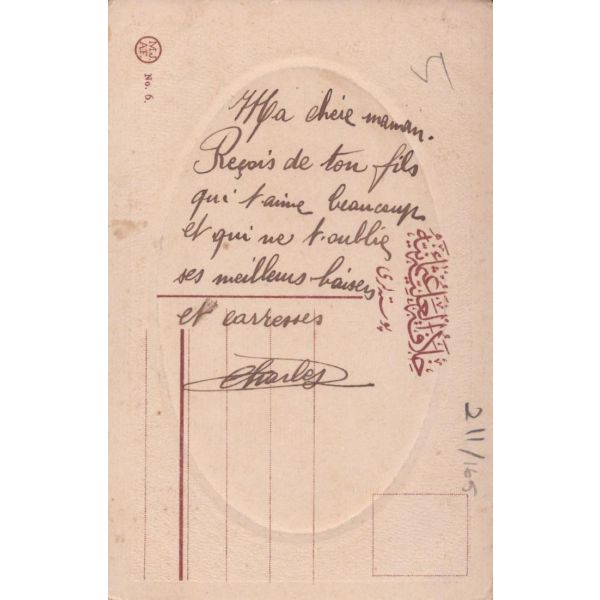 Ma chère maman.
Reçois de ton fils
qui t'aime beaucoup
et qui ne t'oublie
ses meilleurs baisers
et carresses
Charles
M.J.
A.F.
No. 6.
5
211/165